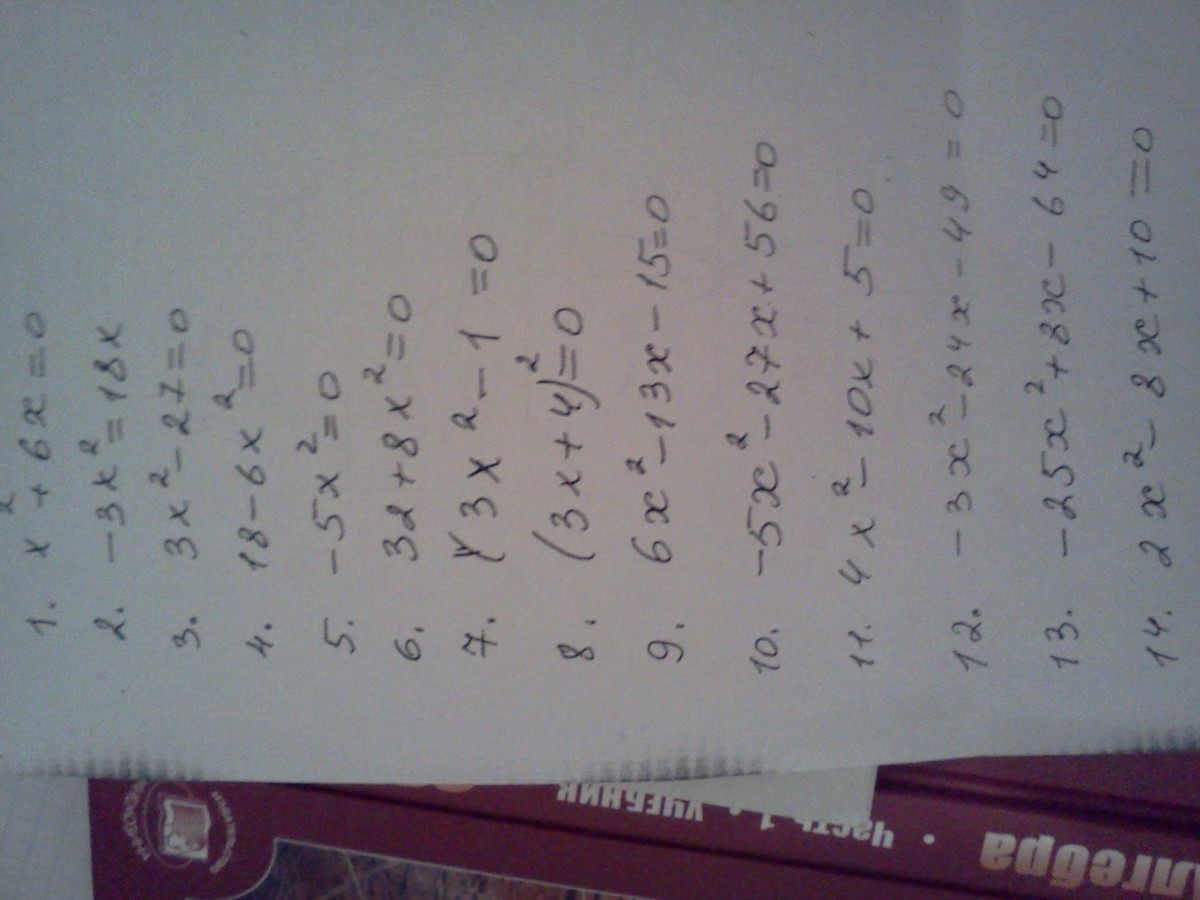 1. x² + 6x = 0
2. -3x² = 18x
3. 3x² - 27 = 0
4. 18 - 6x² = 0
5. -5x² = 0
6. 32 + 8x² = 0
7. 3x² - 1 = 0
8. (3x + 4)² = 0
9. 6x² - 13x - 15 = 0
10. -5x² - 27x + 56 = 0
11. 4x² - 10x + 5 = 0
12. -3x² - 24x - 49 = 0
13. -25x² + 8x - 64 = 0
14. 2x² - 8x + 10 = 0
Часть 1 • УЧЕБНИК
лгебра